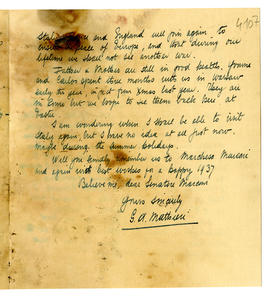 4107
Italy, France and England will join again, to
ensure peace of Europe, and that during our
lifetime we shall not see another war.
Father & Mother are still in good health, Joanna
and Carlos spent three months with us in Warsaw
early this year, and for Xmas last year. They are
in Rome but we hope to see them back here at
Easter.
I am wondering when I shall be able to visit
Italy again, but I have no idea at all just now.
Maybe during the summer holidays.
Will you kindly remember us to Marchesa Marconi
and again with best wishes for a happy 1937
Believe me, dear Senatore Marconi
Yours sincerely
G. A. Mathieu